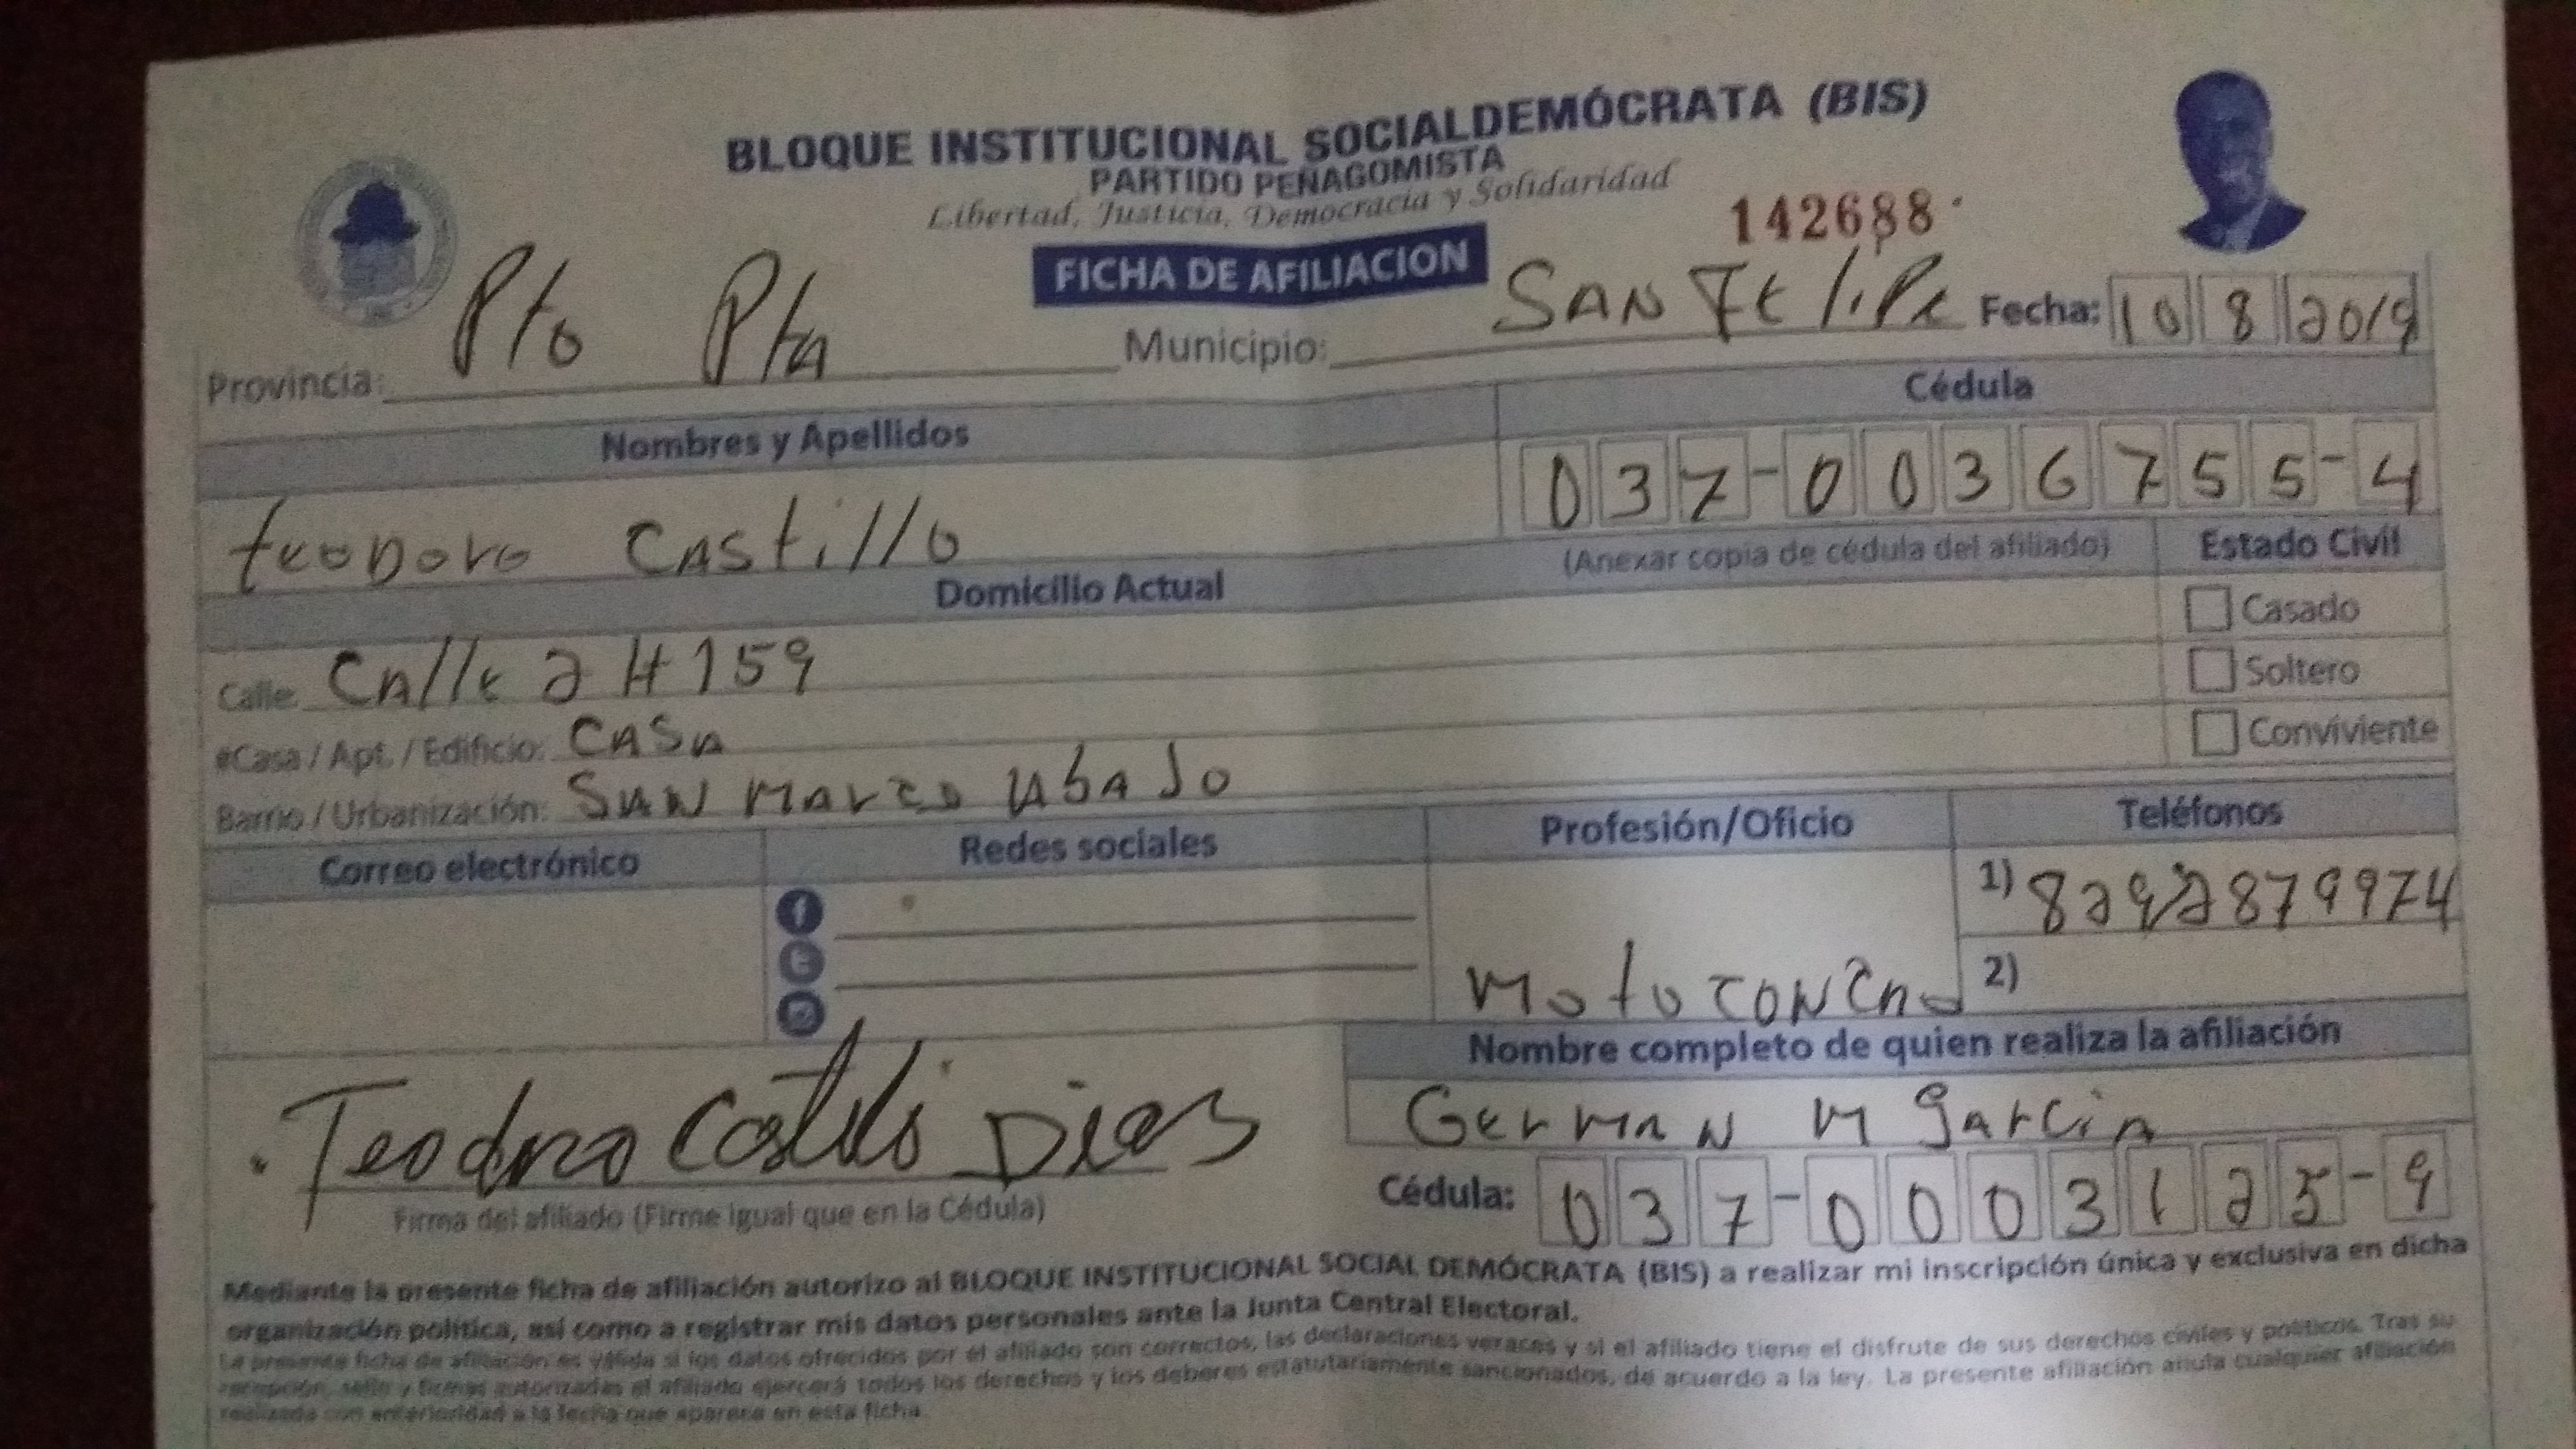 BLOQUE INSTITUCIONAL SOCIALDEMÓCRATA (BIS)
PARTIDO PEÑAGOMISTA
Libertad, Justicia, Democracia y Solidaridad
142688
FICHA DE AFILIACION
Provincia: Pto Pta Municipio: SAN FELIPE Fecha: 10 8 2019
Nombres y Apellidos Cédula
teodoro CAStillo 037-0036755-4
Domicilio Actual (Anexar copia de cédula del afiliado) Estado Civil
Calle: CAlle 2 # 159 Casado
#Casa / Apt. / Edificio: CASA Soltero
Barrio / Urbanización: SAN MArco AbAJo Conviviente
Correo electrónico Redes sociales Profesión/Oficio Teléfonos
1) 8292879974
Motoconcho 2)
Nombre completo de quien realiza la afiliación
Teodoro Castillo Dias GerMAN M garciA
Firma del afiliado (Firme igual que en la Cédula) Cédula: 037-0003125-9
Mediante la presente ficha de afiliación autorizo al BLOQUE INSTITUCIONAL SOCIAL DEMÓCRATA (BIS) a realizar mi inscripción única y exclusiva en dicha
organización política, así como a registrar mis datos personales ante la Junta Central Electoral.
La presente ficha de afiliación es válida si los datos ofrecidos por el afiliado son correctos, las declaraciones veraces y si el afiliado tiene el disfrute de sus derechos civiles y políticos. Tras su
recepción, sello y firmas autorizadas el afiliado ejercerá todos los derechos y los deberes estatutariamente sancionados, de acuerdo a la ley. La presente afiliación anula cualquier afiliación
realizada con anterioridad a la fecha que aparece en esta ficha.